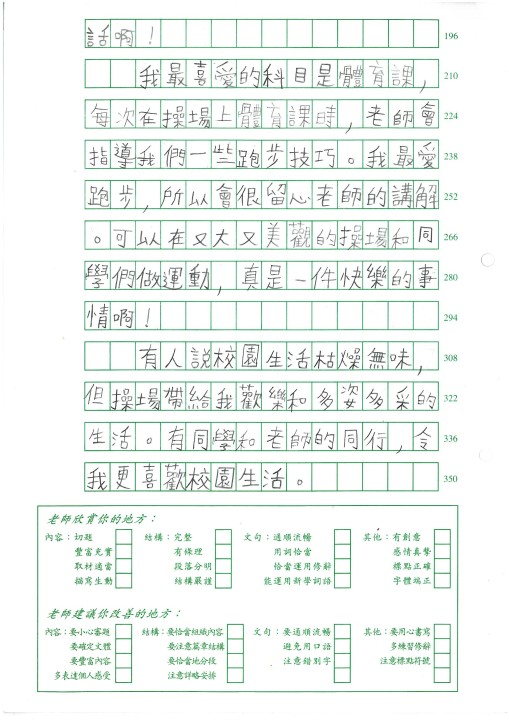 話啊！ 196
我最喜愛的科目是體育課， 210
每次在操場上體育課時，老師會 224
指導我們一些跑步技巧。我最愛 238
跑步，所以會很留心老師的講解 252
。可以在又大又美觀的操場和同 266
學們做運動，真是一件快樂的事 280
情啊！ 294
有人說校園生活枯燥無味， 308
但操場帶給我歡樂和多姿多采的 322
生活。有同學和老師的同行，令 336
我更喜歡校園生活。 350
老師欣賞你的地方：
內容：切題 結構：完整 文句：通順流暢 其他：有創意
豐富充實 有條理 用詞恰當 感情真摯
取材適當 段落分明 恰當運用修辭 標點正確
描寫生動 結構嚴謹 能運用新學詞語 字體端正
老師建議你改善的地方：
內容：要小心審題 結構：要恰當組織內容 文句：要通順流暢 其他：要用心書寫
要確定文體 要注意篇章結構 避免用口語 多練習修辭
要豐富內容 要恰當地分段 注意錯別字 注意標點符號
多表達個人感受 注意詳略安排